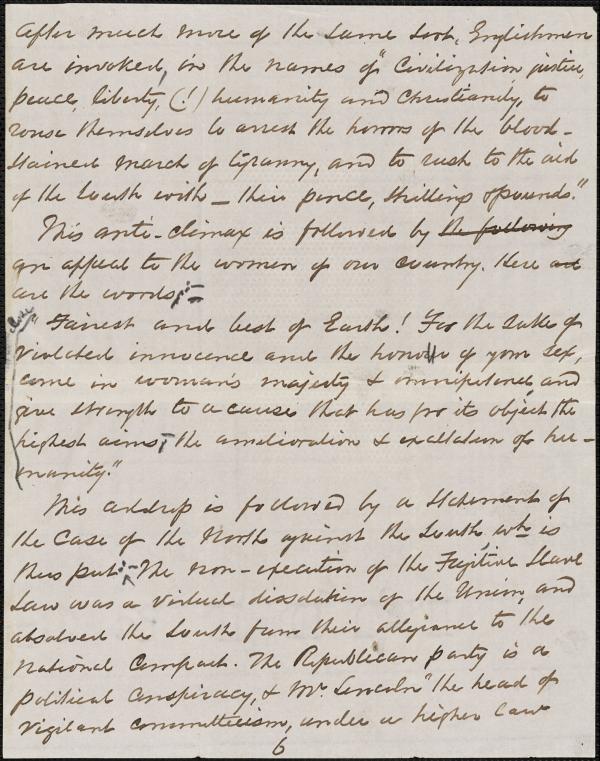 after much more of the same sort, Englishmen
are invoked, in the names of "Civilization justice,
peace, liberty, (!) humanity and Christianity, to
rouse themselves to arrest the horrors of the blood-
stained march of tyranny, and to rush to the aid
of the South with — their pence, shillings & pounds."
This anti-climax is followed by the following
an appeal to the women of our country. Here are
are the words:—
"Fairest and best of Earth! For the sake of
violated innocence and the honor of your sex,
come in woman's majesty & omnipotence, and
give strength to a cause that has for its object the
highest aims, the amelioration & exaltation of hu-
manity."
This is followed by a statement of
the Case of the North against the South, wh. is
thus put:— The non-execution of the Fugitive Slave
Law was a virtual dissolution of the Union, and
absolved the South from their allegiance to the
National Compact. The Republican party is a
political Conspiracy, & Mr. Lincoln "the head of
vigilant committeeism, under a higher law
6